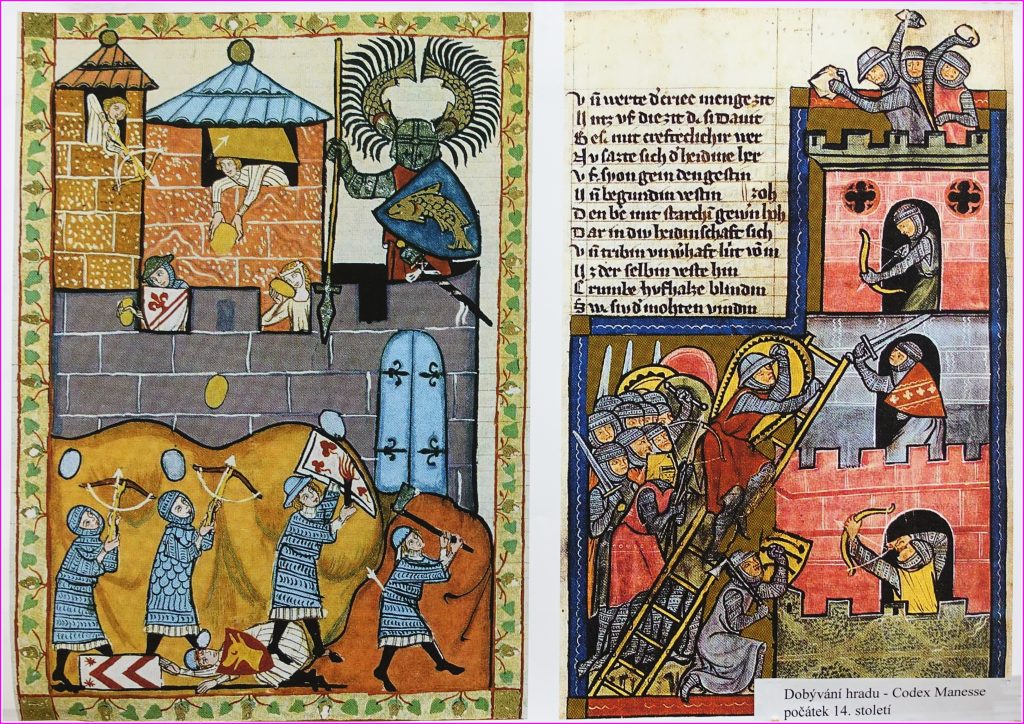 V n̄ werte d' criec menge zit
U ntz vf die zit dc si Dauit
mit creftechchir wer
N v sazte sich d' heidine her
V f syon gein den gestin
U n̄ begundin vestin zoh
D en mit starchī gewin hoh
D ar in div heidinschaft sich
V n̄ tribin vnw'haft lut vō in
U z der selbin veste hin
C rumbe hufhalze blindin
mohten vindin
Dobývání hradu - Codex Manesse
počátek 14. století